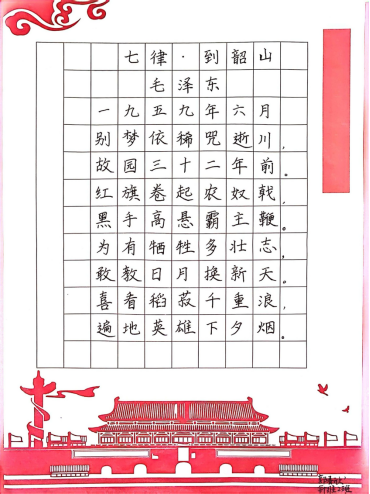 七律·到韶山
毛泽东
一九五九年六月
别梦依稀咒逝川，
故园三十二年前。
红旗卷起农奴戟，
黑手高悬霸主鞭。
为有牺牲多壮志，
敢教日月换新天。
喜看稻菽千重浪，
遍地英雄下夕烟。